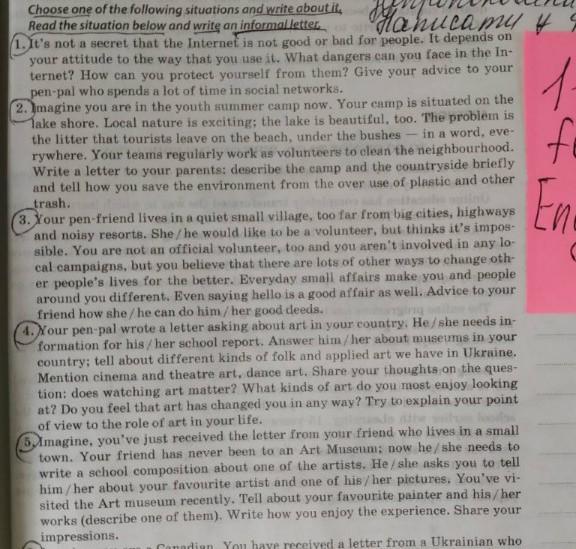 Choose one of the following situations and write about it.
Read the situation below and write an informal letter.
Написати
1. It's not a secret that the Internet is not good or bad for people. It depends on
your attitude to the way that you use it. What dangers can you face in the In-
ternet? How can you protect yourself from them? Give your advice to your
pen-pal who spends a lot of time in social networks.
2. Imagine you are in the youth summer camp now. Your camp is situated on the
lake shore. Local nature is exciting; the lake is beautiful, too. The problem is
the litter that tourists leave on the beach, under the bushes — in a word, eve-
rywhere. Your teams regularly work as volunteers to clean the neighbourhood.
Write a letter to your parents: describe the camp and the countryside briefly
and tell how you save the environment from the over use of plastic and other
trash.
3. Your pen-friend lives in a quiet small village, too far from big cities, highways
and noisy resorts. She/he would like to be a volunteer, but thinks it's impos-
sible. You are not an official volunteer, too and you aren't involved in any lo-
cal campaigns, but you believe that there are lots of other ways to change oth-
er people's lives for the better. Everyday small affairs make you and people
around you different. Even saying hello is a good affair as well. Advice to your
friend how she/he can do him/her good deeds.
4. Your pen-pal wrote a letter asking about art in your country. He/she needs in-
formation for his/her school report. Answer him/her about museums in your
country; tell about different kinds of folk and applied art we have in Ukraine.
Mention cinema and theatre art, dance art. Share your thoughts on the ques-
tion: does watching art matter? What kinds of art do you most enjoy looking
at? Do you feel that art has changed you in any way? Try to explain your point
of view to the role of art in your life.
5. Imagine, you've just received the letter from your friend who lives in a small
town. Your friend has never been to an Art Museum; now he/she needs to
write a school composition about one of the artists. He/she asks you to tell
him/her about your favourite artist and one of his/her pictures. You've vi-
sited the Art museum recently. Tell about your favourite painter and his/her
works (describe one of them). Write how you enjoy the experience. Share your
impressions.
Canadian. You have received a letter from a Ukrainian who